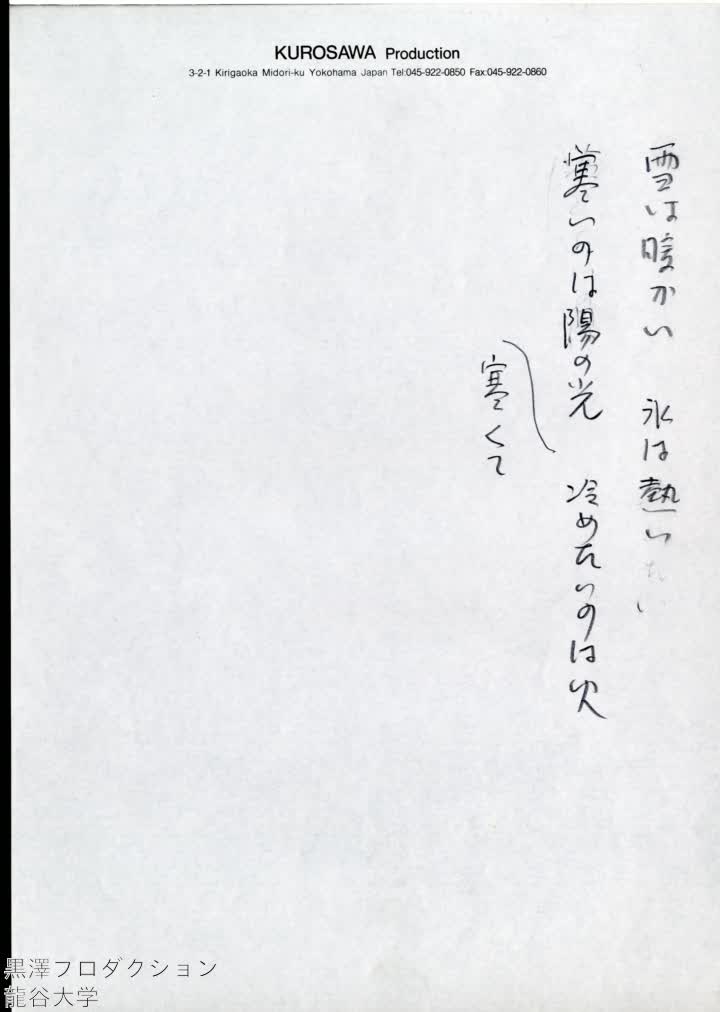 KUROSAWA Production
3-2-1 Kirigaoka Midori-ku Yokohama Japan Tel:045-922-0850 Fax:045-922-0860
雪は暖かい 氷は熱い
寒いのは陽の光 冷めたいのは火
寒くて
黒澤プロダクション
龍谷大学